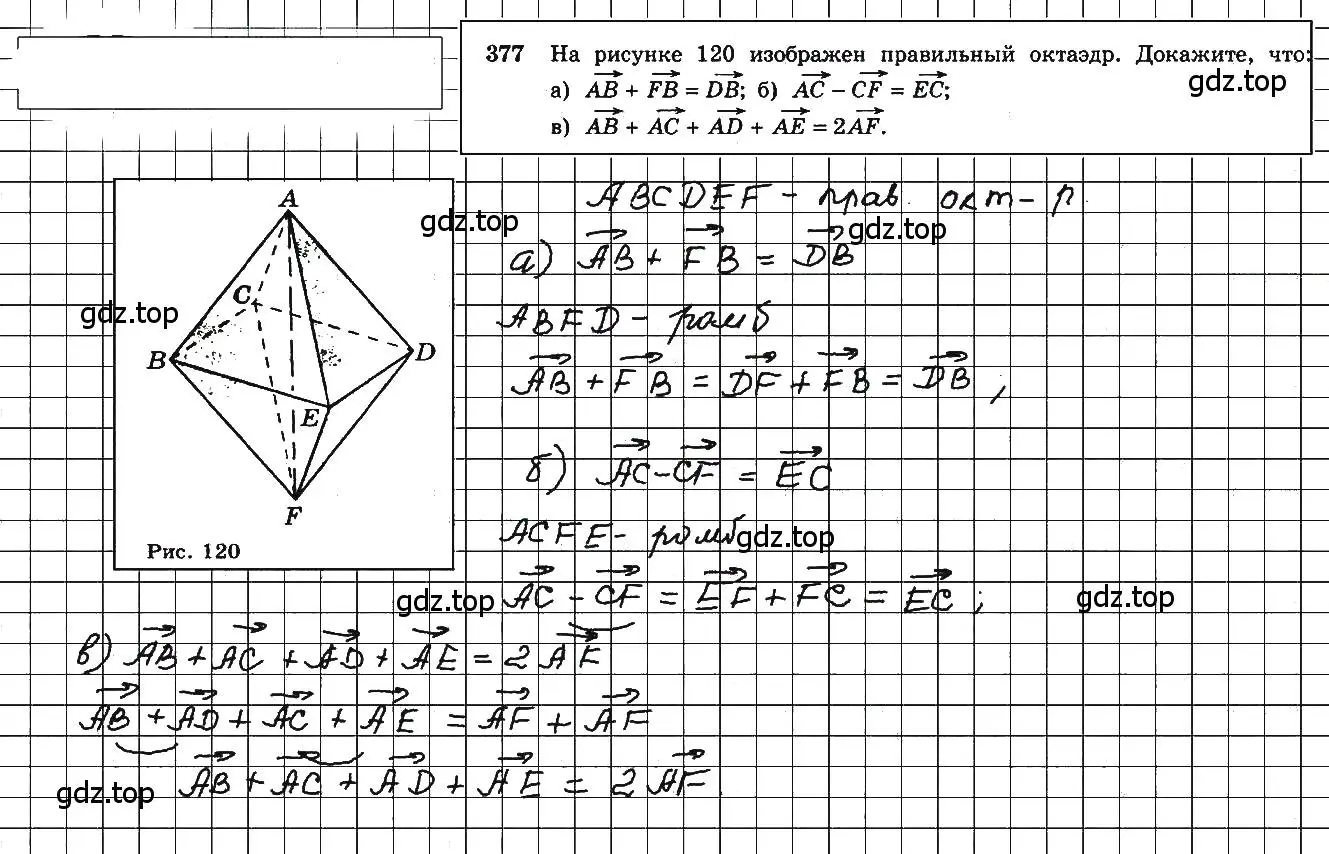 377 На рисунке 120 изображен правильный октаэдр. Докажите, что:
а) AB + FB = DB; б) AC − CF = EC;
gdz.top
в) AB + AC + AD + AE = 2AF.
A
gdz.top
C
gdz.top
B
D
E
F
Рис. 120
ABCDEF - прав. окт-р
gdz.top
а) AB + FB = DB
ABFD - ромб
AB + FB = DF + FB = DB ;
б) AC - CF = EC
ACFE - ромб
gdz.top
AC - CF = EF + FC = EC ;
gdz.top
gdz.top
в) AB + AC + AD + AE = 2AF
AB + AD + AC + AE = AF + AF
AB + AC + AD + AE = 2AF.
gdz.top